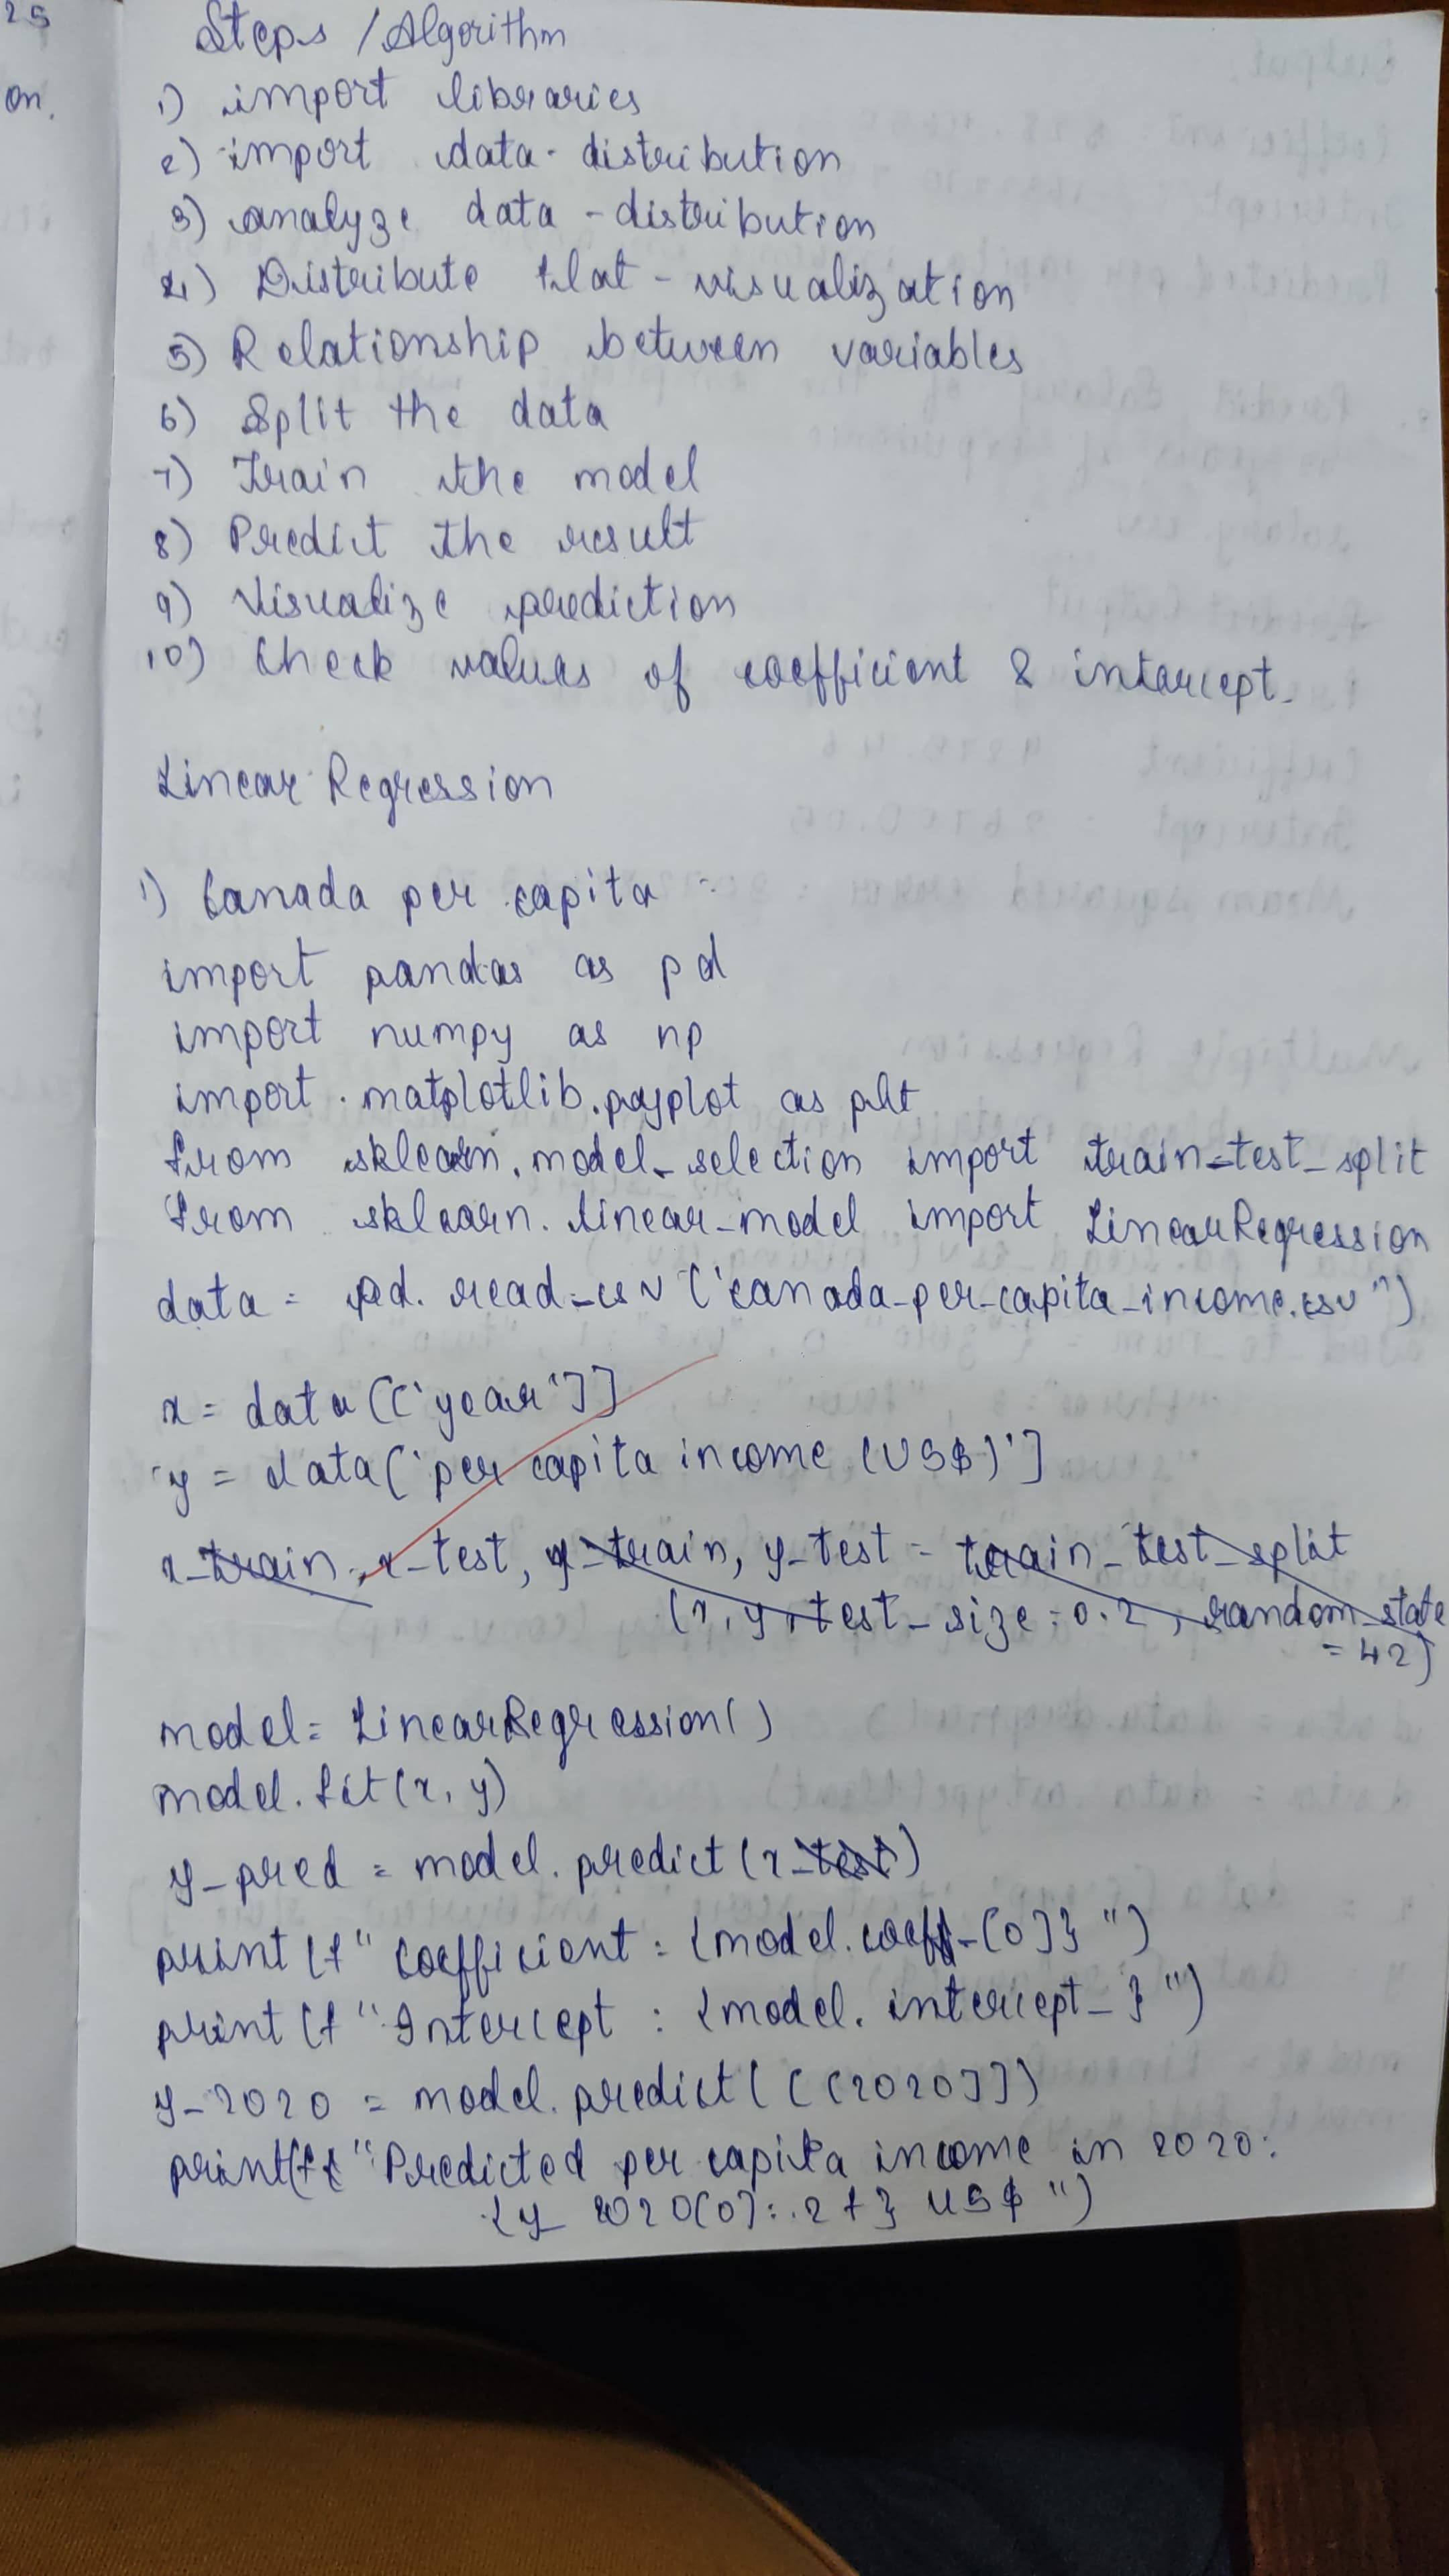 25
on.
Steps / Algorithm
1) import libraries
2) import data - distribution
3) analyze data - distribution
4) Distribute plot - visualization
5) Relationship between variables
6) Split the data
7) Train the model
8) Predict the result
9) Visualize prediction
10) Check values of coefficient & intercept.
Linear Regression
1) Canada per capita -
import pandas as pd
import numpy as np
import matplotlib.pyplot as plt
from sklearn.model_selection import train_test_split
from sklearn.linear_model import LinearRegression
data = pd.read_csv('canada_per_capita_income.csv")
x = data[['year']]
y = data['per capita income (US$)']
x_train, x_test, y_train, y_test = train_test_split
(x, y, test_size = 0.2, random_state
= 42)
model = LinearRegression()
model.fit(x, y)
y_pred = model.predict(x_test)
print(f"Coefficient : {model.coeff_[0]}")
print(f"Intercept : {model.intercept_}")
y_2020 = model.predict([[2020]])
print(f"Predicted per capita income in 2020:
{y_2020[0]:.2f} US$")